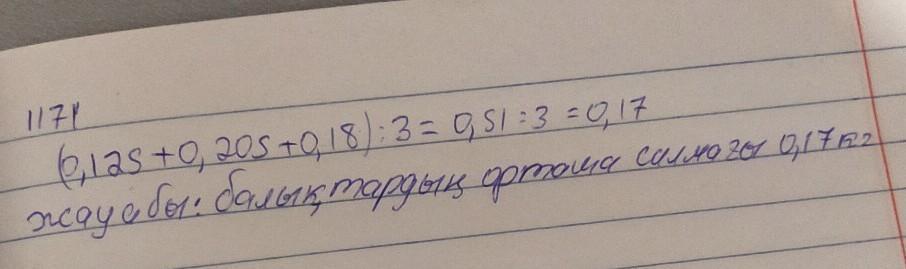 1171
(0,125+0,205+0,18):3=0,51:3=0,17
жауабы: балықтардың орташа салмағы 0,17кг